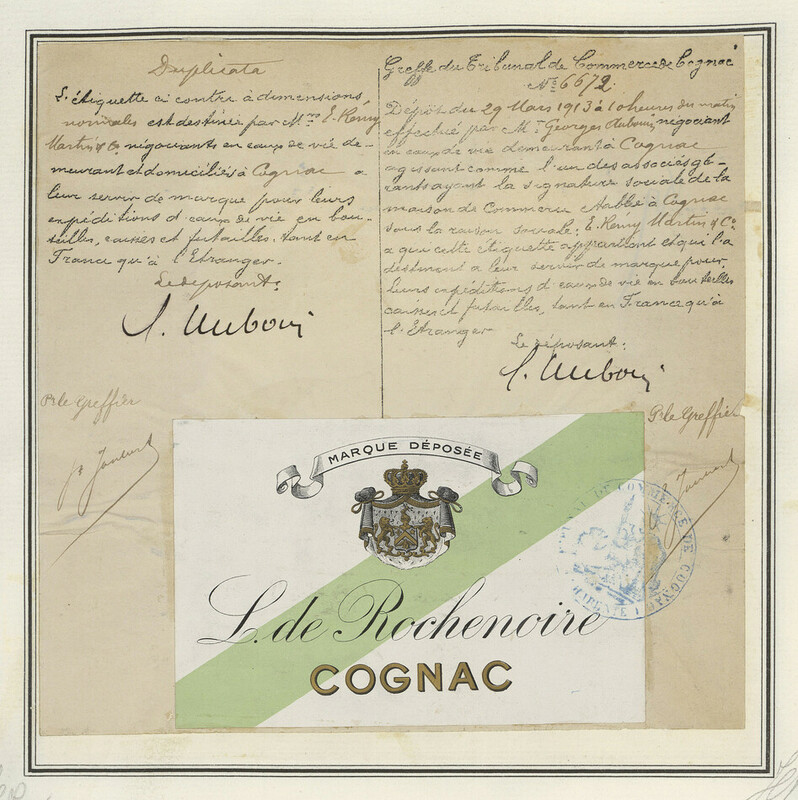 Duplicata
L'étiquette ci contre à dimensions
nominales est destinée par Mrs E. Rémy
Martin & Co négociants en eaux de vie de-
meurant et domiciliés à Cognac a
leur servir de marque pour leurs
expéditions d'eaux de vie en bou-
teilles, caisses et futailles, tant en
France qu'à l'Etranger.
Le déposant:
Pr le Greffier
Greffe du Tribunal de Commerce de Cognac
No 6672
Dépôt du 29 Mars 1913 à 10 heures du matin
effectué par Mr Georges Auboin négociant
en eaux de vie demeurant à Cognac
agissant comme l'un des associés gé-
rants ayant la signature sociale de la
maison de Commerce établie à Cognac
sous la raison sociale: E. Rémy Martin & Co
a qui cette étiquette appartient et qui l'a
destinent a leur servir de marque pour
leurs expéditions d'eaux de vie en bouteilles
caisses et futailles, tant en France qu'à
l'Etranger
Le déposant:
Pr le Greffier
MARQUE DÉPOSÉE
L. de Rochenoire
COGNAC
DE COMMERCE DE COGNAC